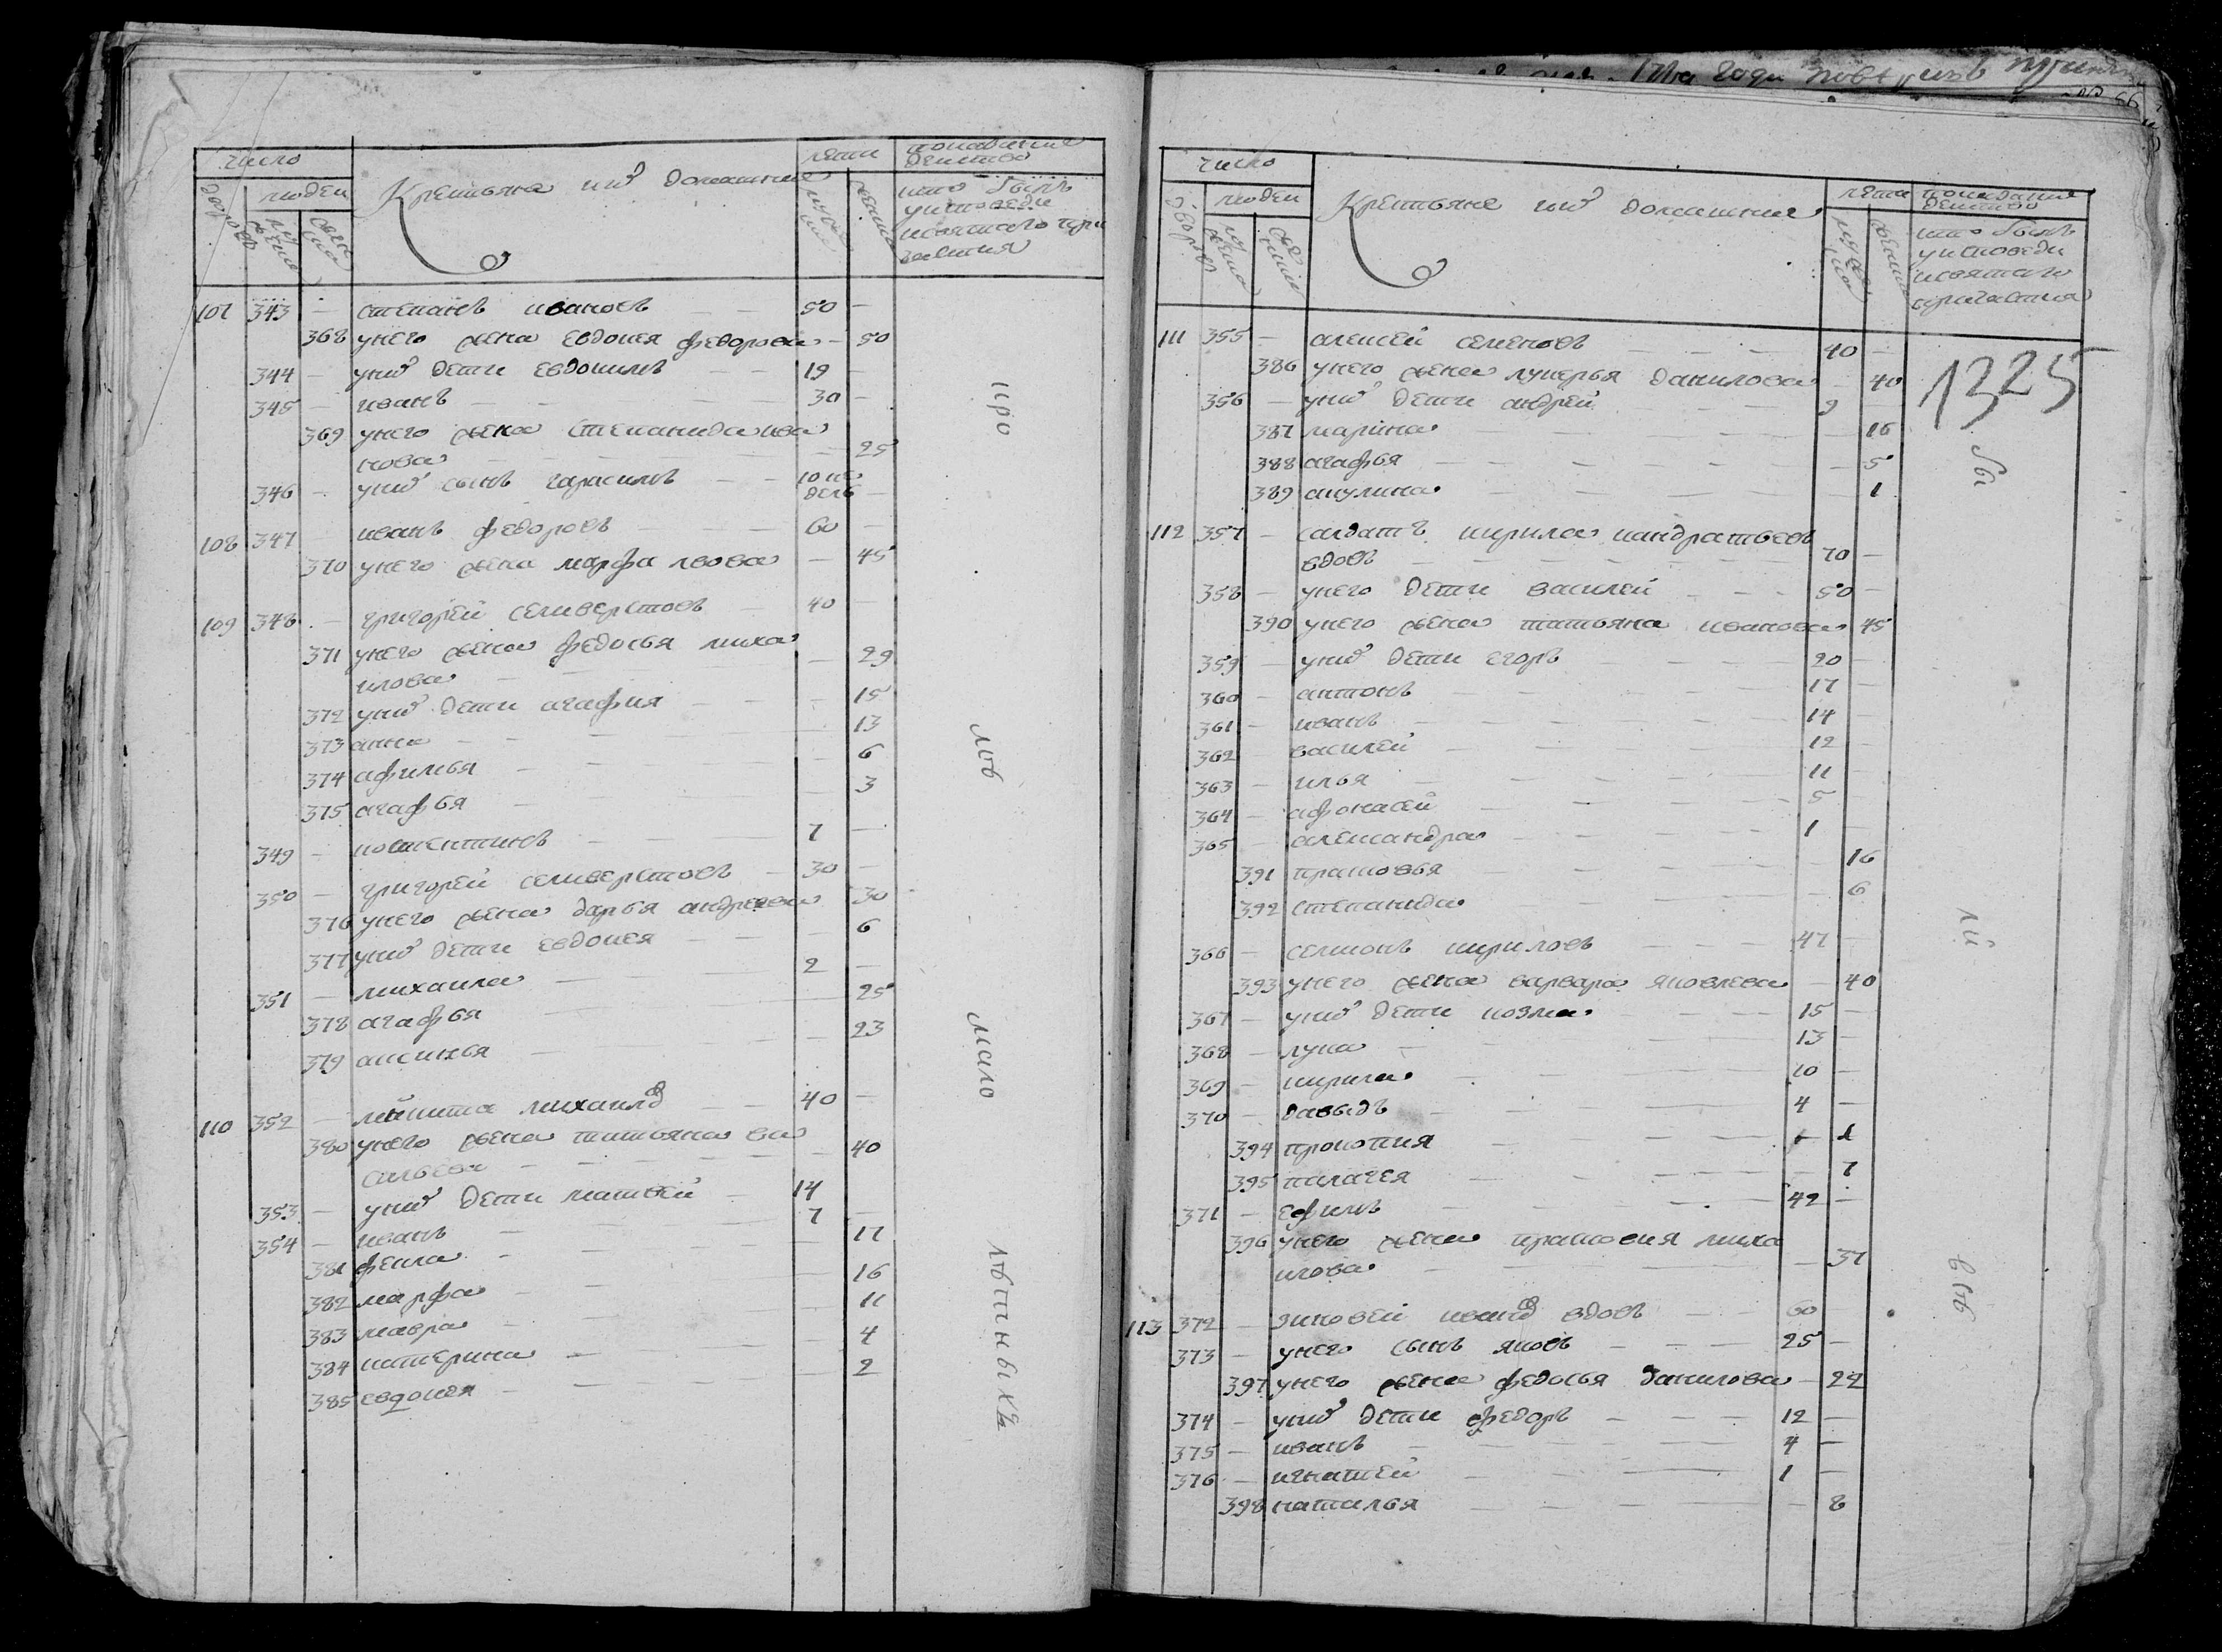 число
дворовъ
людей
мужеска
женска
Крестьяне ихъ домашние
лета
мужеска
женска
показание действо
кто былъ
у исповеди
и святаго при
частия
107 343 — степанъ ивановъ — 50 —
368 у него жена евдокея федорова — 50
344 — у них дети евдокимъ — — 19 —
345 — иванъ — — — — 30 —
369 у него жена степанида ива
нова — — — — 25
346 — у них сынъ гарасимъ — — 10 не
дель —
108 347 — иванъ федоровъ — — — 60 —
370 у него жена марфа лвова — 45
109 348 — григорей селиверстовъ — 40 —
371 у него жена федосья миха
илова — — — 29
372 у них дети агафия — — — 15
373 анна — — — — 13
374 афимья — — — — 6
375 агафья — — — 3
349 — костентинъ — — — 7 —
350 — григорей селиверстовъ — 30 —
376 у него жена дарья андреева 30
377 у них дети евдокея — — — 6
351 — михаила — — 2 —
378 агафья — — 25
379 аксинья — — — 23
110 352 — никита михаилов — — 40 —
380 у него жена татьяна ва
сильева — — — — 40
353 — у них дети матвей — 14
354 — иванъ — — 7 —
381 фекла — — — 17
382 марфа — — — 16
383 мавра — — — 11
384 катерина — — — 4
385 евдокея — — — 2
про
мало
число
дворовъ
людей
мужеска
женска
Крестьяне ихъ домашние
лета
мужеска
женска
показание действо
кто былъ
у исповеди
и святаго
причастия
1325
111 355 — алексей семеновъ — — — 40 —
386 у него жена лукерья данилова — 40
356 — у них дети андрей — — — 9 —
387 марина — — — — 16
388 агафья — — — — — 5
389 акулина — — — — 1
112 357 — салдатъ кирила кандратьевъ
вдовъ — — — — — 70 —
358 — у него дети василей — — — 50 —
390 у него жена татьяна иванова 45
359 — у них дети егоръ — — — 20 —
360 — антонъ — — — — 17 —
361 — иванъ — — — — — 14 —
362 — василей — — — — 12 —
363 — илья — — — — 11 —
364 — афонасей — — — — 5 —
365 — александра — — — — 1 —
391 прасковья — — — — 16
392 степанида — — — — 6
366 — семионъ кириловъ — — — 47 —
393 у него жена варвара яковлева — 40
367 — у них дети козма — — — 15 —
368 — лука — — — — 13 —
369 — кирила — — — 10 —
370 — давыдъ — — — — 4 —
394 прокопия — — — 1
395 пилагея — — — — 7
371 — ефимъ — — — — 42 —
396 у него жена прасковия миха
илова — — — — 37
113 372 — зиновей иванов вдовъ — — 60 —
373 — у него сынъ яковъ — — — 25 —
397 у него жена федосья данилова — 22
374 — у них дети федоръ — — — 12 —
375 — иванъ — — — — 4 —
376 — игнатей — — — — 1 —
398 наталья — — — — 8
бы